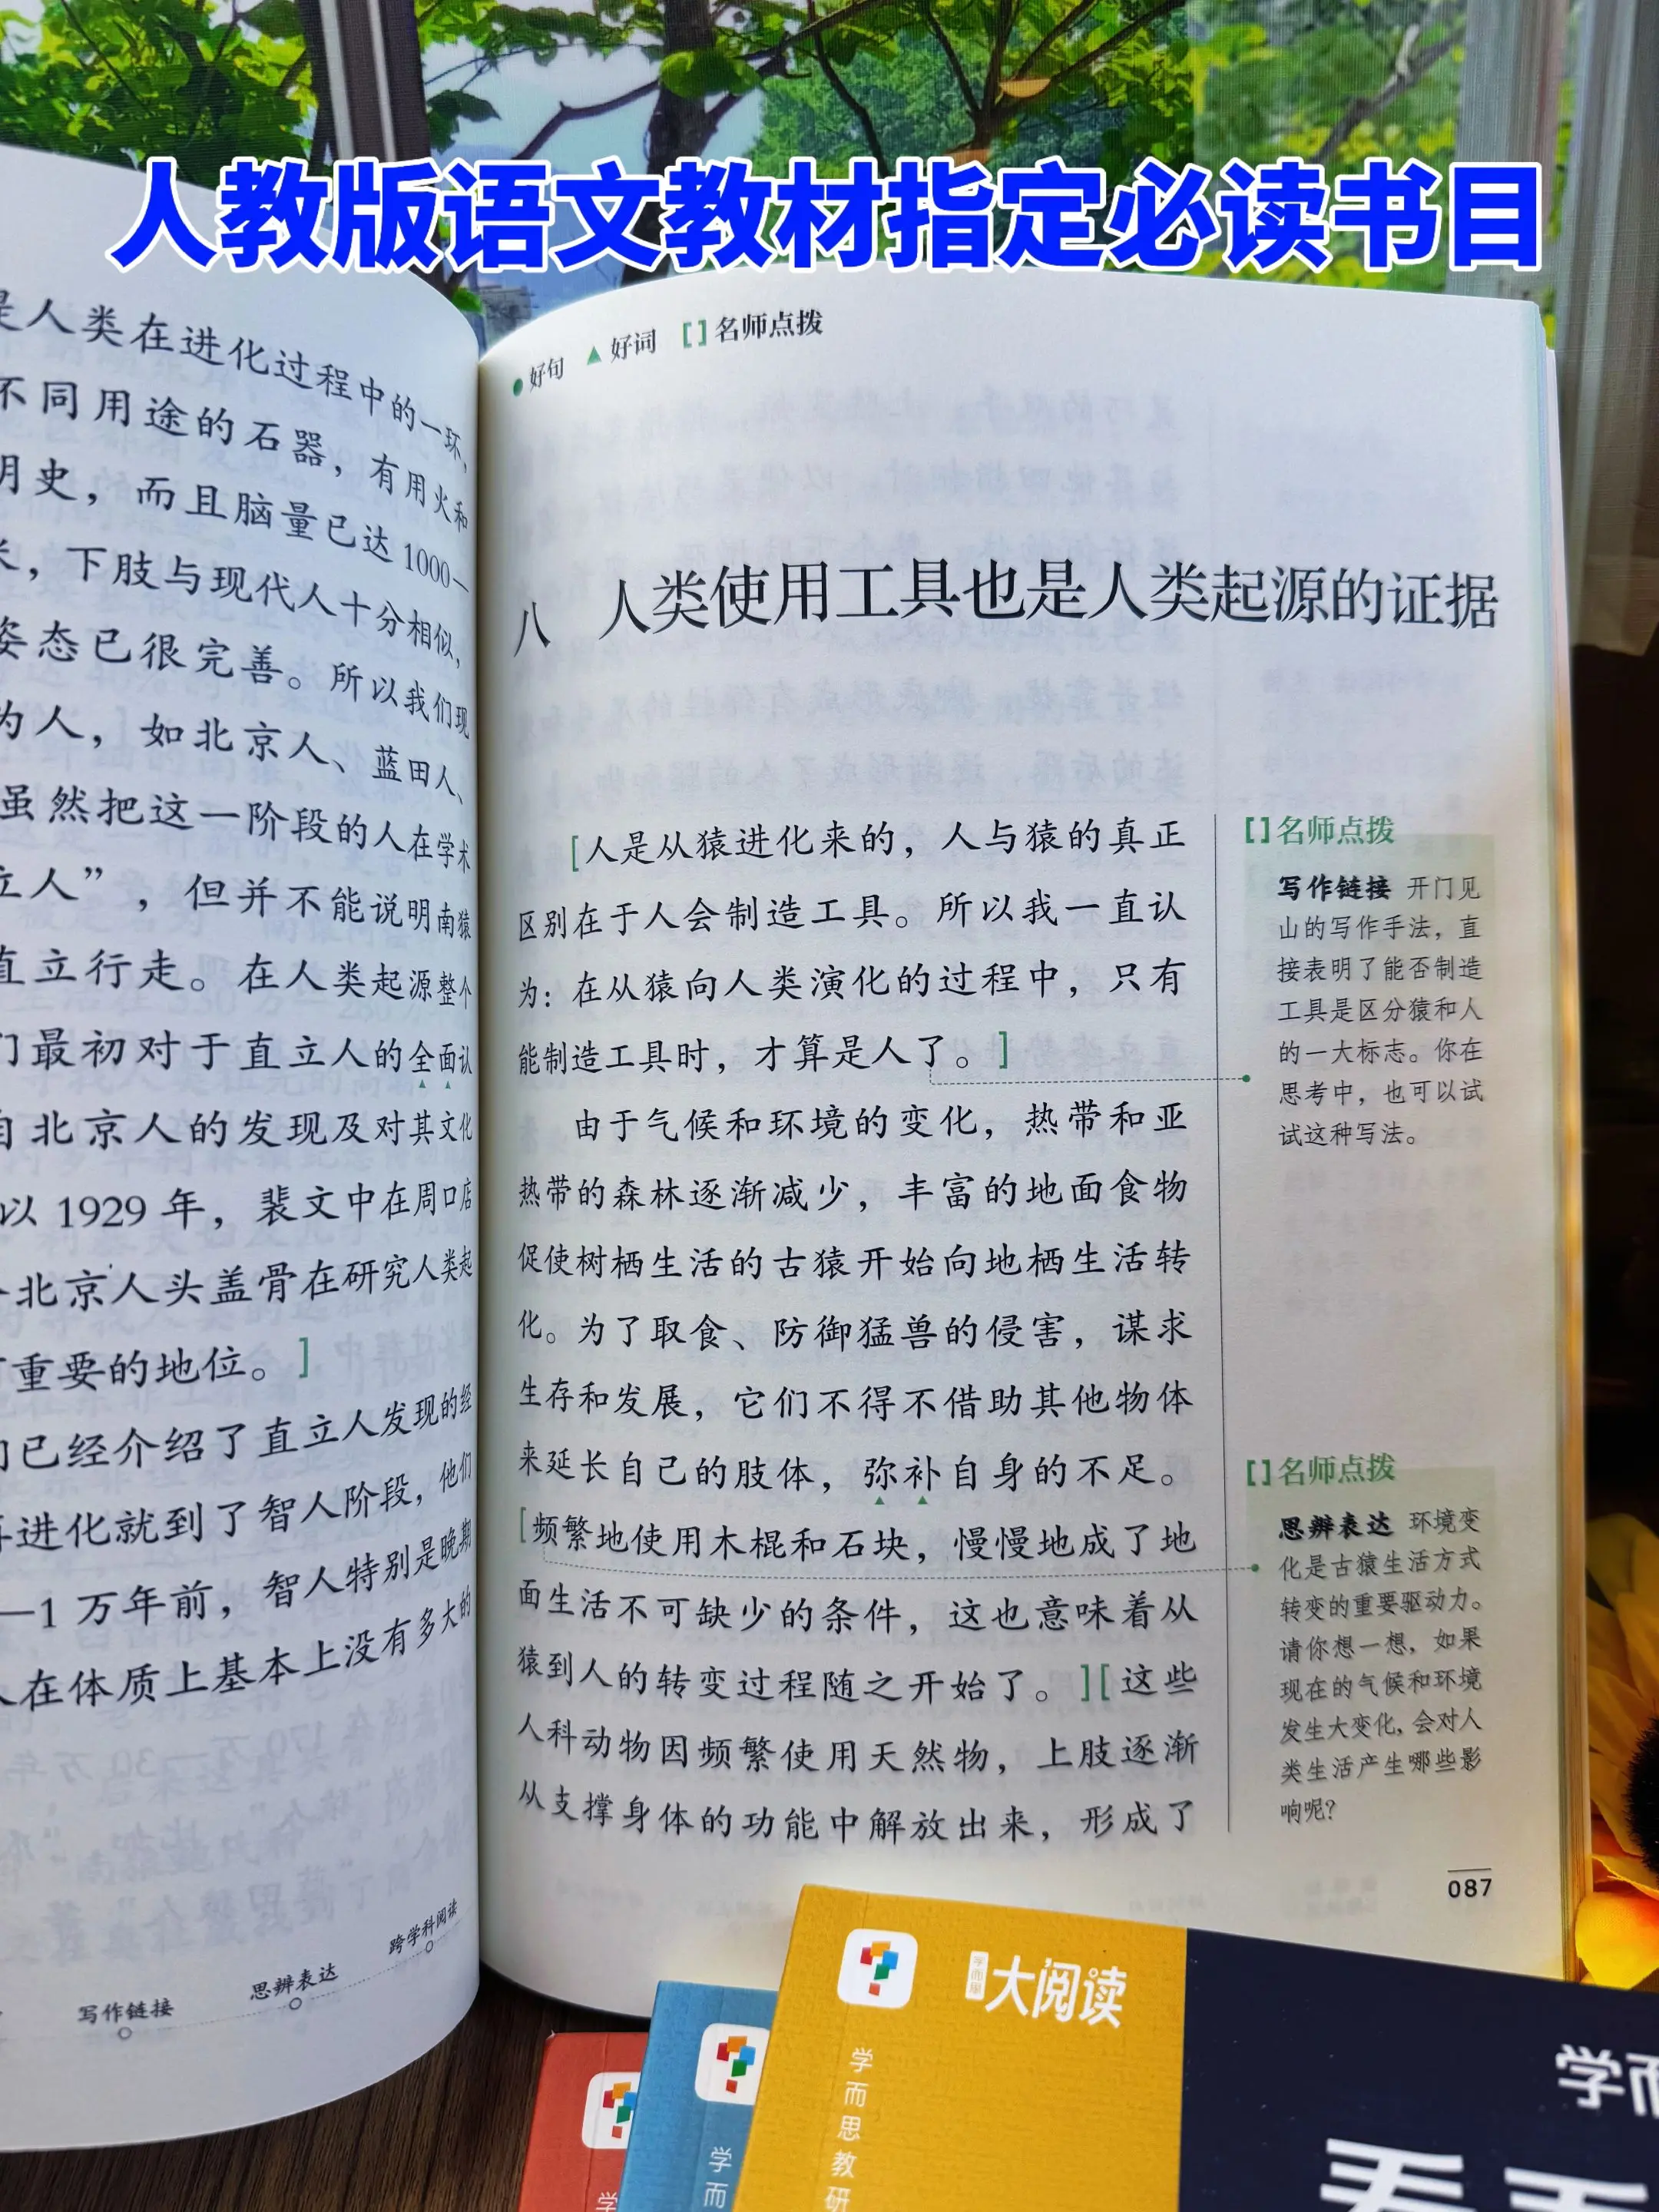 人教版语文教材指定必读书目
是人类在进化过程中的一环，
不同用途的石器，有用火和
明史，而且脑量已达1000—
米，下肢与现代人十分相似，
姿态已很完善。所以我们现
为人，如北京人、蓝田人、
虽然把这一阶段的人在学术
立人”，但并不能说明南猿
直立行走。在人类起源整个
们最初对于直立人的全面认
自北京人的发现及对其文化
以1929年，裴文中在周口店
个北京人头盖骨在研究人类起
有重要的地位。]
们已经介绍了直立人发现的经
再进化就到了智人阶段，他们
—1万年前，智人特别是晚期
人在体质上基本上没有多大的
写作链接
思辨表达
跨学科阅读
好句 ▲好词 []名师点拨
八 人类使用工具也是人类起源的证据
[人是从猿进化来的，人与猿的真正
区别在于人会制造工具。所以我一直认
为：在从猿向人类演化的过程中，只有
能制造工具时，才算是人了。]
由于气候和环境的变化，热带和亚
热带的森林逐渐减少，丰富的地面食物
促使树栖生活的古猿开始向地栖生活转
化。为了取食、防御猛兽的侵害，谋求
生存和发展，它们不得不借助其他物体
来延长自己的肢体，弥补自身的不足。
[频繁地使用木棍和石块，慢慢地成了地
面生活不可缺少的条件，这也意味着从
猿到人的转变过程随之开始了。][这些
人科动物因频繁使用天然物，上肢逐渐
从支撑身体的功能中解放出来，形成了
[]名师点拨
写作链接 开门见
山的写作手法，直
接表明了能否制造
工具是区分猿和人
的一大标志。你在
思考中，也可以试
试这种写法。
[]名师点拨
思辨表达 环境变
化是古猿生活方式
转变的重要驱动力。
请你想一想，如果
现在的气候和环境
发生大变化，会对人
类生活产生哪些影
响呢？
087
学而思
大阅读
学而思教研
学而
学
学而